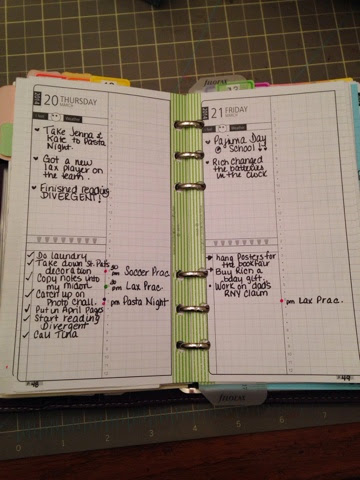 20 THURSDAY
MARCH
Take Jenna &
Kate to Pasta
Night.
Got a new
lax player on
the team.
Finished reading
DIVERGENT!
Do laundry
Take down St. Pat's
decoration
Copy notes into
my midori
Catch up on
Photo Chall.
Put in April Pages
Start reading
Divergent
Call Tina
30
pm Soccer Prac.
30
pm Lax Prac.
pm Pasta Night
21 FRIDAY
MARCH
Pajama Day
@ School
Rich changed
the batteries
in the clock
hang Posters for
the bookfair
Buy Rich a
bday gift.
Work on dad's
RNY Claim
pm Lax Prac.
1
2
3
4
5
6
7